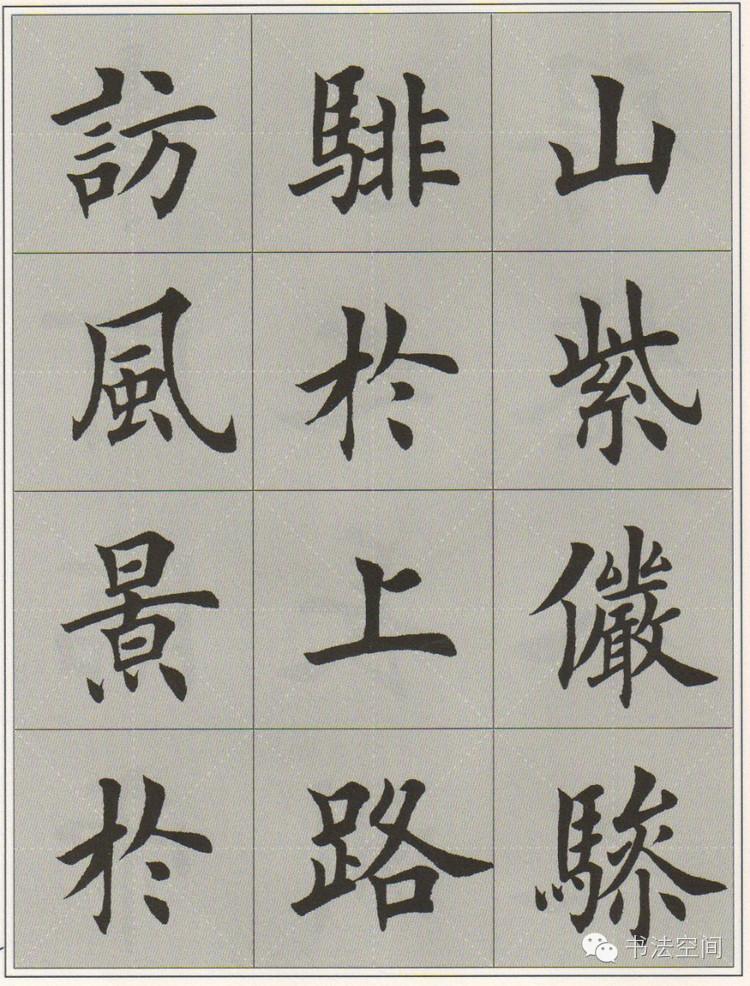 山紫儼驂
騑於上路
訪風景於
书法空间